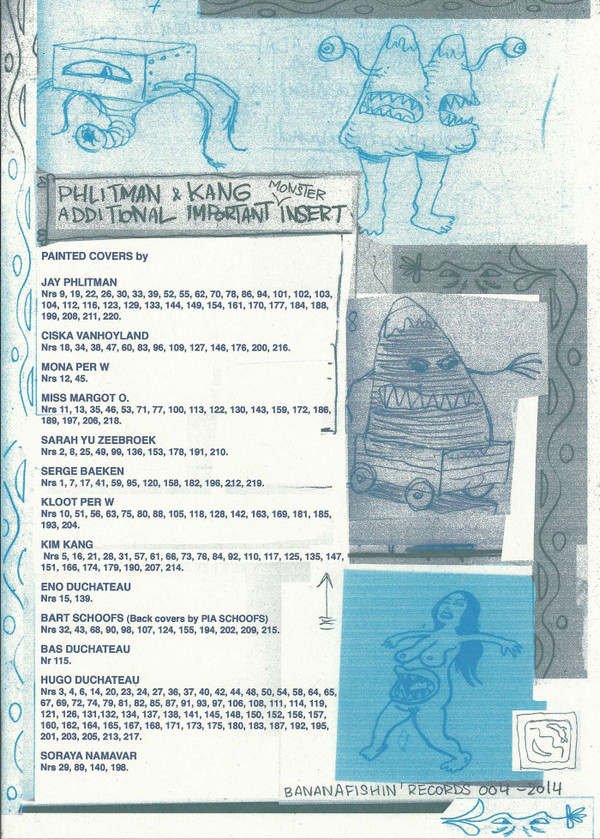 7
PHLITMAN & KANG MONSTER
ADDITIONAL IMPORTANT INSERT
PAINTED COVERS by
JAY PHLITMAN
Nrs 9, 19, 22, 26, 30, 33, 39, 52, 55, 62, 70, 78, 86, 94, 101, 102, 103,
104, 112, 116, 123, 129, 133, 144, 149, 154, 161, 170, 177, 184, 188,
199, 208, 211, 220.
CISKA VANHOYLAND
Nrs 18, 34, 38, 47, 60, 83, 96, 109, 127, 146, 176, 200, 216.
MONA PER W
Nrs 12, 45.
MISS MARGOT O.
Nrs 11, 13, 35, 46, 53, 71, 77, 100, 113, 122, 130, 143, 159, 172, 186,
189, 197, 206, 218.
SARAH YU ZEEBROEK
Nrs 2, 8, 25, 49, 99, 136, 153, 178, 191, 210.
SERGE BAEKEN
Nrs 1, 7, 17, 41, 59, 95, 120, 158, 182, 196, 212, 219.
KLOOT PER W
Nrs 10, 51, 56, 63, 75, 80, 88, 105, 118, 128, 142, 163, 169, 181, 185,
193, 204.
KIM KANG
Nrs 5, 16, 21, 28, 31, 57, 61, 66, 73, 76, 84, 92, 110, 117, 125, 135, 147,
151, 166, 174, 179, 190, 207, 214.
ENO DUCHATEAU
Nrs 15, 139.
BART SCHOOFS (Back covers by PIA SCHOOFS)
Nrs 32, 43, 68, 90, 98, 107, 124, 155, 194, 202, 209, 215.
BAS DUCHATEAU
Nr 115.
HUGO DUCHATEAU
Nrs 3, 4, 6, 14, 20, 23, 24, 27, 36, 37, 40, 42, 44, 48, 50, 54, 58, 64, 65,
67, 69, 72, 74, 79, 81, 82, 85, 87, 91, 93, 97, 106, 108, 111, 114, 119,
121, 126, 131,132, 134, 137, 138, 141, 145, 148, 150, 152, 156, 157,
160, 162, 164, 165, 167, 168, 171, 173, 175, 180, 183, 187, 192, 195,
201, 203, 205, 213, 217.
SORAYA NAMAVAR
Nrs 29, 89, 140, 198.
8
BANANAFISHIN' RECORDS 004 - 2014